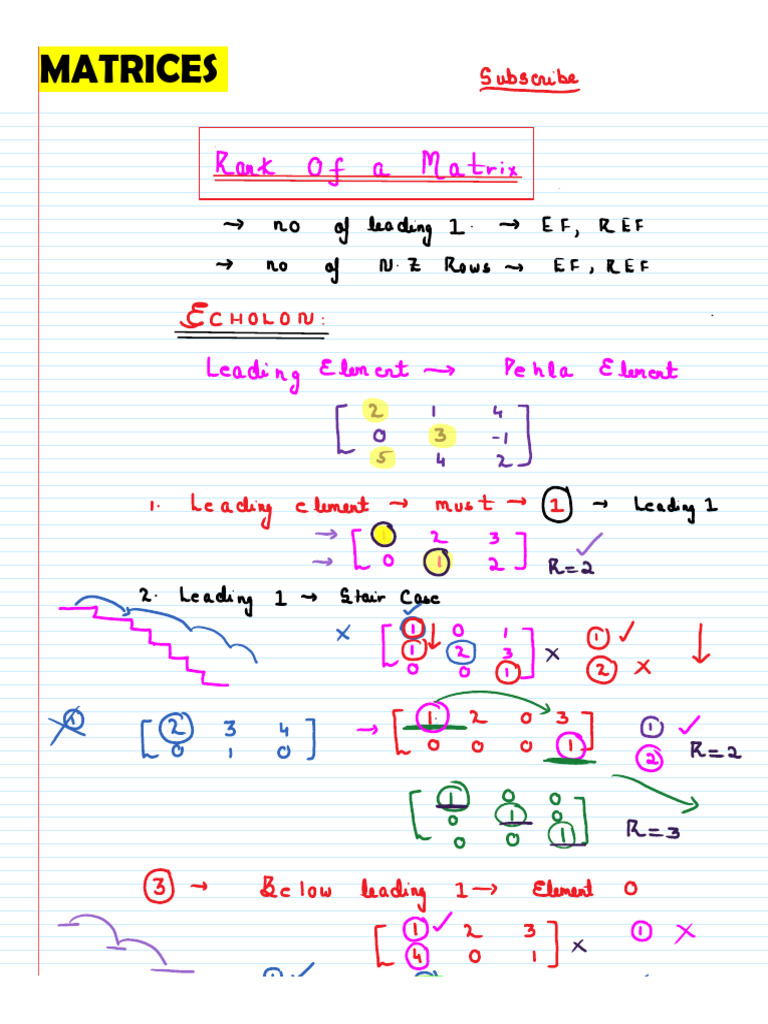 MATRICES
Subscribe
Rank Of a Matrix
→ no of leading 1. → EF, REF
→ no of N.Z Rows → EF, REF
ECHOLON:
Leading Element → Pehla Element
2 1 4
0 3 -1
5 4 2
1. Leading element → must → 1 → Leading 1
→ 1 2 3 ✓
→ 0 1 2 R=2
2. Leading 1 → Stair Case
x 1 0 1 1 ✓
1 2 3 x 2 x
0 0 1
1 2 3 4 → 1 2 0 3 1 ✓
0 1 0 0 0 0 1 2 R=2
1 0 0
0 1 0 R=3
0 0 1
3 → Below leading 1 → Element 0
1 ✓ 2 3 1 x
4 0 1 x